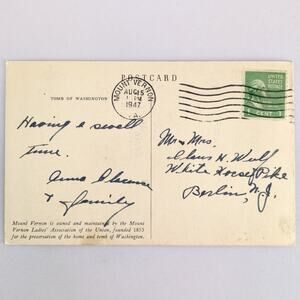 POSTCARD
TOMB OF WASHINGTON
MOUNT VERNON
AUG 15
PM
1947
VA.
1 CENT 1
Having a swell
time.
Anna Clarence
& family
Mr & Mrs.
Claus H. Wulf
White Horse Pike
Berlin, N.J.
Mount Vernon is owned and maintained by the Mount
Vernon Ladies' Association of the Union, founded 1853
for the preservation of the home and tomb of Washington.